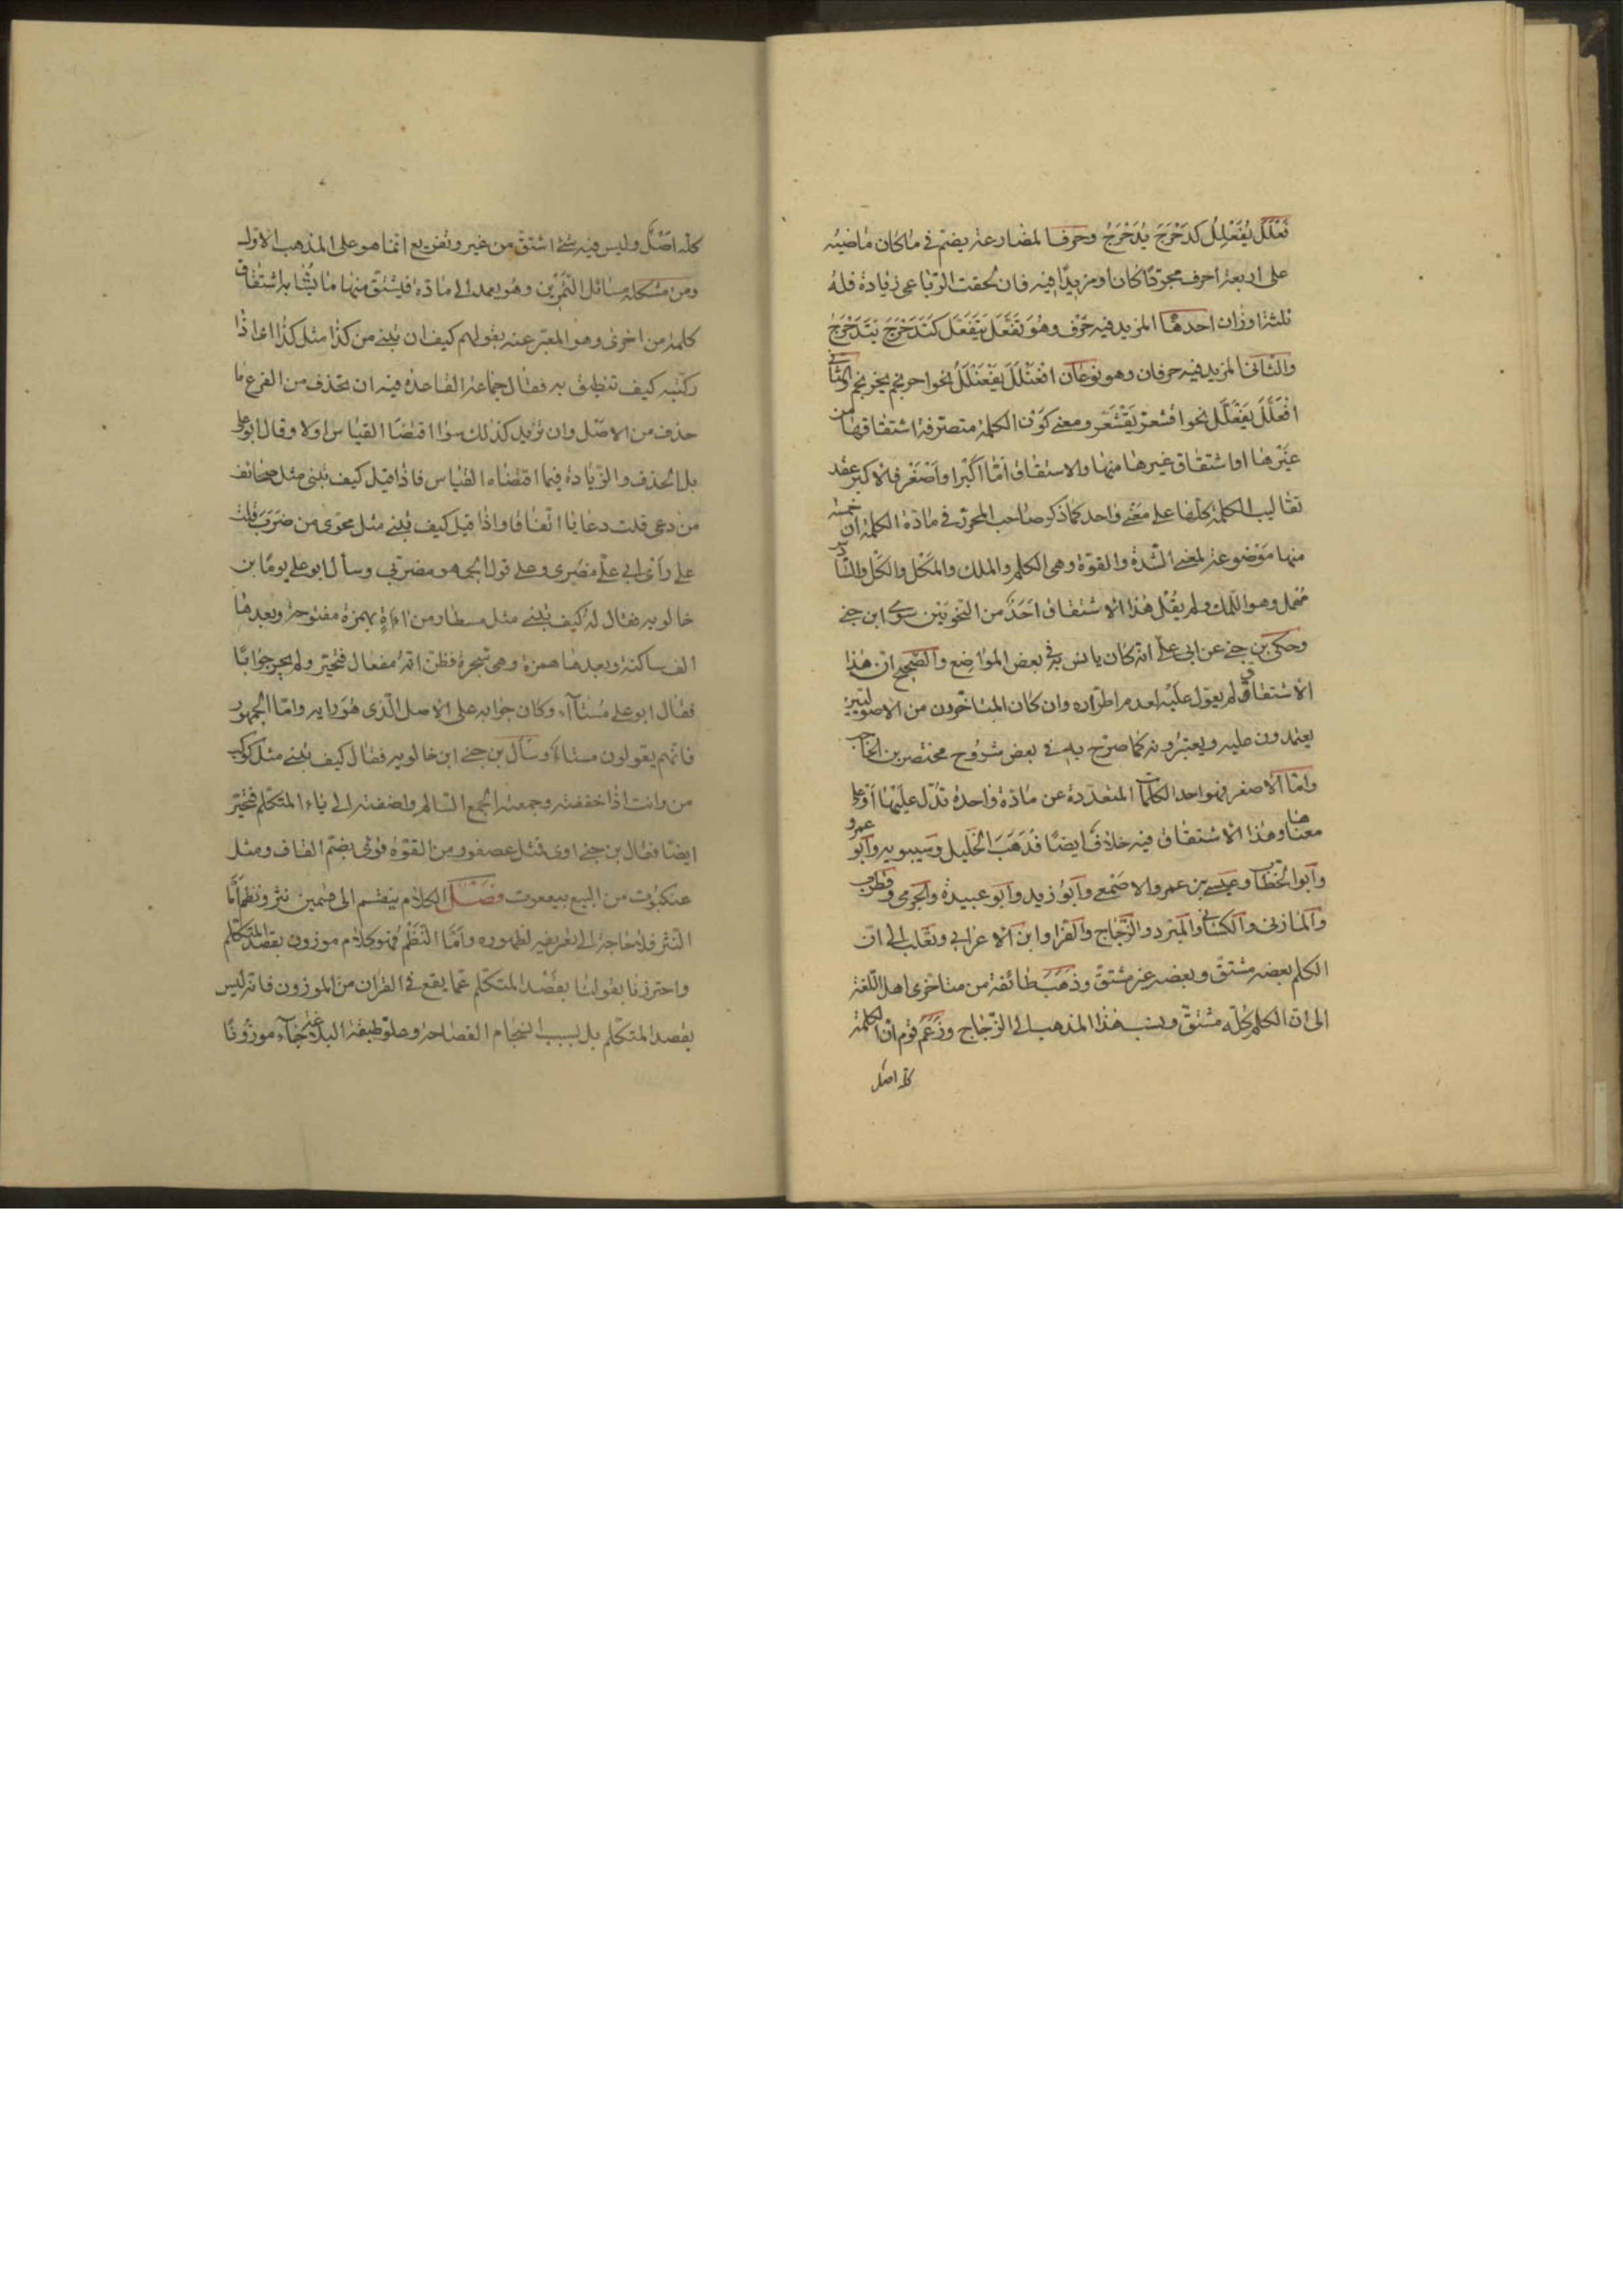 فَعْلَلَ يُفَعْلِلُ كَدَحْرَجَ يُدَحْرِجُ وحرف المضارعة يضم في ما كان ماضيه
على اربعة احرف مجردًا كان او مزيدًا فيه فان لحقت الرباعي زيادة فله
ثلثة اوزان احدها المزيد فيه حرف وهو تَفَعْلَلَ يَتَفَعْلَلُ كَتَدَحْرَجَ يَتَدَحْرَجُ
والثاني المزيد فيه حرفان وهو نوعان افْعَنْلَلَ يَفْعَنْلِلُ نحو احرنجم يحرنجم والثاني
افْعَلَلَّ يَفْعَلِلُّ نحو اقشعرّ يَقْشَعِرّ ومعنى كون الكلمة متصرفة اشتقاقها من
غيرها او اشتقاق غيرها منها والاشتقاق امّا اكبر او اصغر فالاكبر عقد
تقاليب الكلمة كلها على معنى واحد كما ذكر صاحب المحرر في مادة الكلمة ان خمسة
منها موضوعة لمعنى الشدة والقوة وهي الكلم والملك والمكل والكمل والسادس
مهمل وهو اللمك ولم يقل هذا الاشتقاق احد من النحويين سوى ابن جني
وحكى بن جني عن ابي علي انه كان يانس به في بعض المواضع والصحيح ان هذا
الاشتقاق لم يعول عليه لعدم اطراده وان كان المتاخرون من الاصوليين
يعتمدون عليه ويعتبرونه كما صرح به في بعض شروح مختصر بن الحاجب
وامّا الاصغر فهو احد الكلمات المتعددة عن مادة واحدة تدل عليها او على
معناها وهذا الاشتقاق فيه خلاف ايضًا فذهب الخليل وسيبويه وابو عمرو
وابو الخطاب وعيسى بن عمر والاصمعي وابو زيد وابو عبيدة والجرمي وقطرب
والمازني والكسائي والمبرد والزجاج والفرا وابن الاعرابي وثعلب الى ان
الكلم بعضه مشتق وبعضه غير مشتق وذهب طائفة من متاخري اهل اللغة
الى ان الكلم كلّه مشتق ونسب هذا المذهب الى الزجاج وزعم قوم ان الكلمة
كله اصل
كله اصلٌ وليس فيه شئ اشتق من غيره وتفريع انما هو على المذهب الاول
ومن مشكله مسائل التمرين وهو يعمد الى مادة فيشتق منها ما يشابه اشتقاق
كلمة من اخرى وهو المعبر عنه بقولهم كيف ان يبنى من كذا مثل كذا اى اذا
ركبته كيف تنطق به فقال جماعة القاعدة فيه ان تحذف من الفرع ما
حذف من الاصل وان تزيد كذلك سوا اقتضا القياس اولا وقال ابو علي
بل الحذف والزيادة فيما اقتضاه القياس فاذا قيل كيف تبنى مثل صحائف
من دعى قلت دعايا اتفاقا واذا قيل كيف يبنى مثل محوى من ضرب قلت
على رأي ابي علي مضربي وعلى قول الجمهور مضربي وسأل ابو علي يومًا بن
خالويه فقال له كيف يبنى مثل مسطار من اءاءة بهمزة مفتوحة وبعدها
الف ساكنة وبعدها همزة وهي شجرة فظن انه مفعال فتحير ولم يحر جوابًا
فقال ابو علي مستآء وكان جوابه على الاصل الذى هو رايه وامّا الجمهور
فانهم يقولون مستاء وسأل بن جني ابن خالويه فقال كيف يبنى مثل كوكب
من وايت اذا خففته وجمعته الجمع السالم واضفته الى ياء المتكلم فتحير
ايضًا فقال بن جني اوى فمثل عصفور من القوة قوئى بضم القاف ومثل
عنكبوت من البيع بيععوت فصل الكلام ينقسم الى قسمين نثر ونظم اما
النثر فلا حاجة الى تعريفه لظهوره وامّا النَّظْم فهو كلام موزون بقصد المتكلم
واحترزنا بقولنا بقصد المتكلم عما يقع في القران من الموزون فانه ليس
بقصد المتكلم بل بسبب انسجام الفصاحة وعلو طبقة البلاغة جآء موزونًا